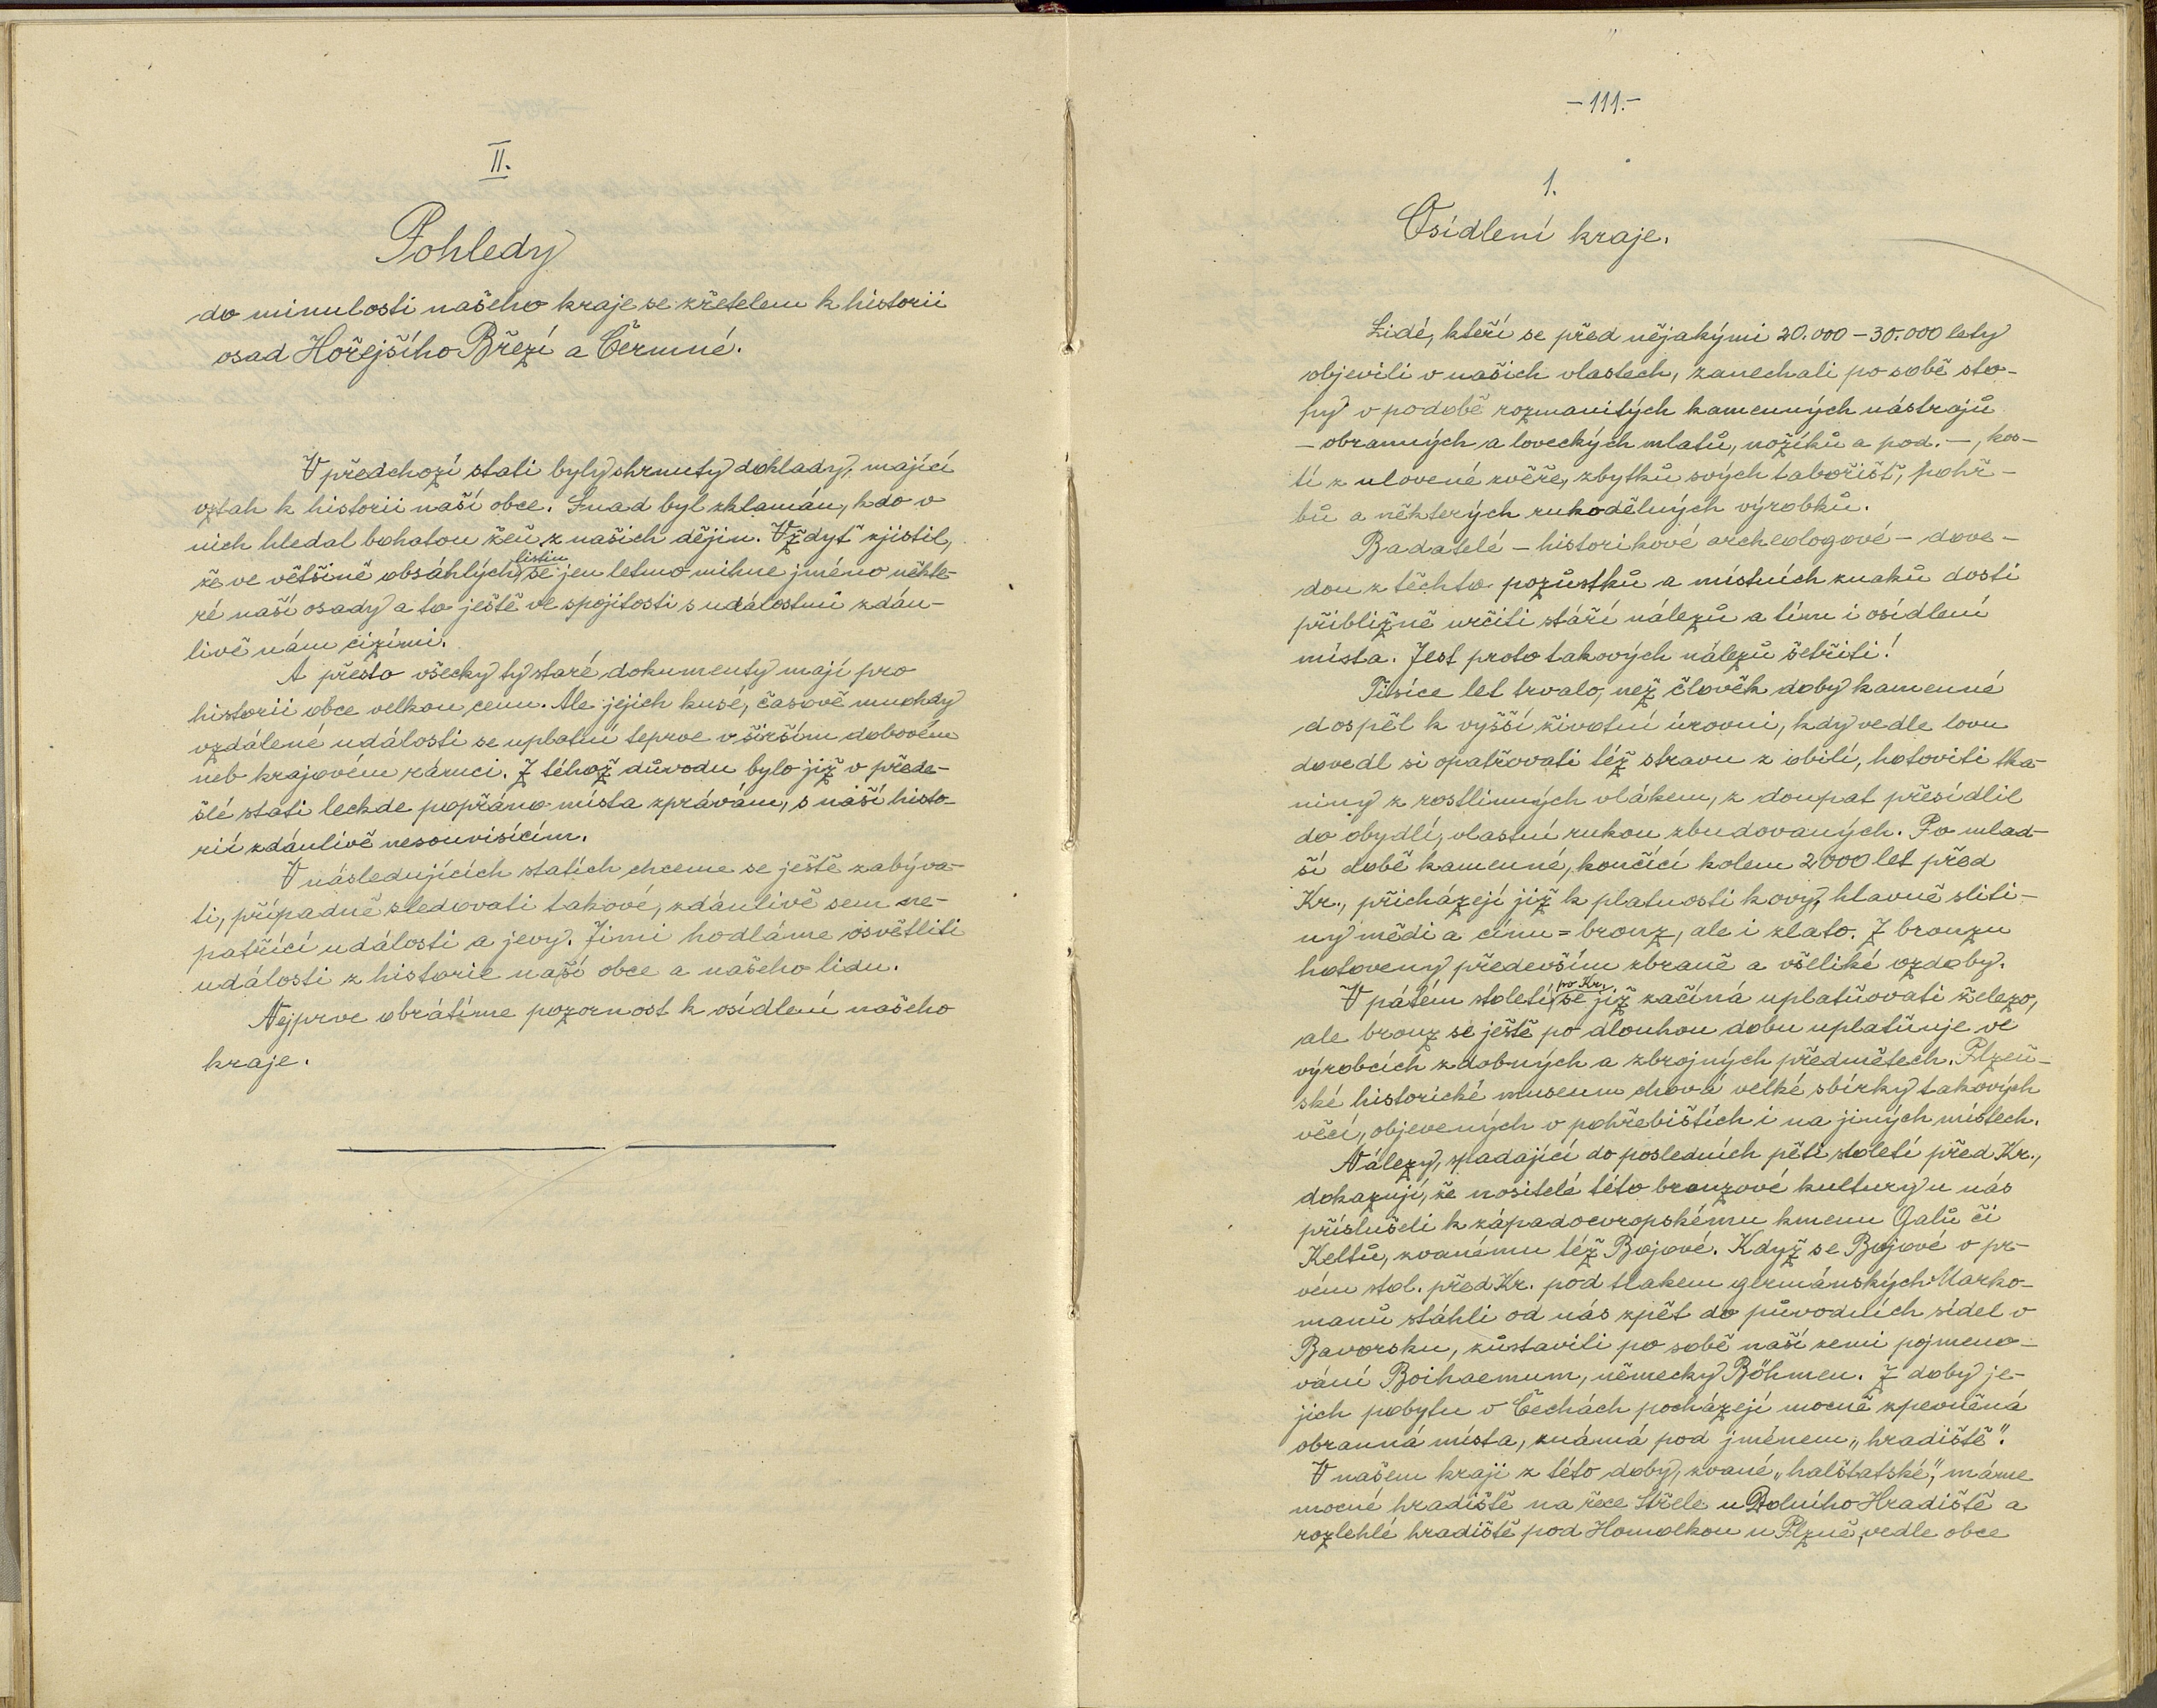 II.
Pohledy
do minulosti našeho kraje se zřetelem k historii
osad Hořejšího Březí a Čermné.
V předchozí stati byly shrnuty doklady, mající
vztah k historii naší obce. Snad byl zklamán, kdo v
nich hledal bohatou žeň z našich dějin. Vždyť zjistil,
že ve většině obsáhlých listin se jen letmo mihne jméno někte-
ré naší osady a to ještě ve spojitosti s událostmi zdán-
livě nám cizími.
A přesto všecky ty staré dokumenty mají pro
historii obce velkou cenu. Ale jejich kusé, časově mnohdy
vzdálené události se uplatní teprve v širším dobovém
neb krajovém rámci. Z téhož důvodu bylo již v přede-
šlé stati leckde popřáno místa zprávám, s naší histo-
rií zdánlivě nesouvisícím.
V následujících statích chceme se ještě zabýva-
ti, případně sledovati takové, zdánlivě sem ne-
patřící události a jevy. Jimi hodláme osvětliti
události z historie naší obce a našeho lidu.
Nejprve obrátíme pozornost k osídlení našeho
kraje.
- 111. -
1.
Osídlení kraje.
Lidé, kteří se před nějakými 20.000 - 30.000 lety
objevili v našich vlastech, zanechali po sobě sto-
py v podobě rozmanitých kamenných nástrojů
- obranných a loveckých mlatů, nožíků a pod. -, kos-
tí z ulovené zvěře, zbytků svých tabořišť, pohř-
bů a některých rukodělných výrobků.
Badatelé - historikové archeologové - dove-
dou z těchto pozůstků a místních znaků dosti
přibližně určiti stáří nálezů a tím i osídlení
místa. Jest proto takových nálezů šetřiti!
Tisíce let trvalo, než člověk doby kamenné
dospěl k vyšší životní úrovni, kdy vedle lovu
dovedl si opatřovati též stravu z obilí, hotoviti tka-
niny z rostlinných vláken, z doupat přesídlil
do obydlí, vlastní rukou zbudovaných. Po mlad-
ší době kamenné, končící kolem 2000 let před
Kr., přicházejí již k platnosti kovy, hlavně sliti-
ny mědi a cínu = bronz, ale i zlato. Z bronzu
hotoveny především zbraně a všeliké ozdoby.
V pátém století po Kr. se již začíná uplatňovati železo,
ale bronz se ještě po dlouhou dobu uplatňuje ve
výrobcích zdobných a zbrojných předmětech. Plzeň-
ské historické museum chová velké sbírky takových
věcí, objevených v pohřebištích i na jiných místech.
Nálezy, spadající do posledních pěti století před Kr.,
dokazují, že nositelé této bronzové kultury u nás
příslušeli k západoevropskému kmenu Galů či
Keltů, zvanému též Bojové. Když se Bojové v pr-
vém stol. před Kr. pod tlakem germánských Marko-
manů stáhli od nás zpět do původních sídel v
Bavorsku, zůstavili po sobě naší zemi pojmeno-
vání Boihaemum, německy Böhmen. Z doby je-
jich pobytu v Čechách pocházejí mocně zpevněná
obranná místa, známá pod jménem „hradiště".
V našem kraji z této doby, zvané „halštatské", máme
mocné hradiště na řece Střele u Dolního Hradiště a
rozlehlé hradiště pod Homolkou u Plzně, vedle obce